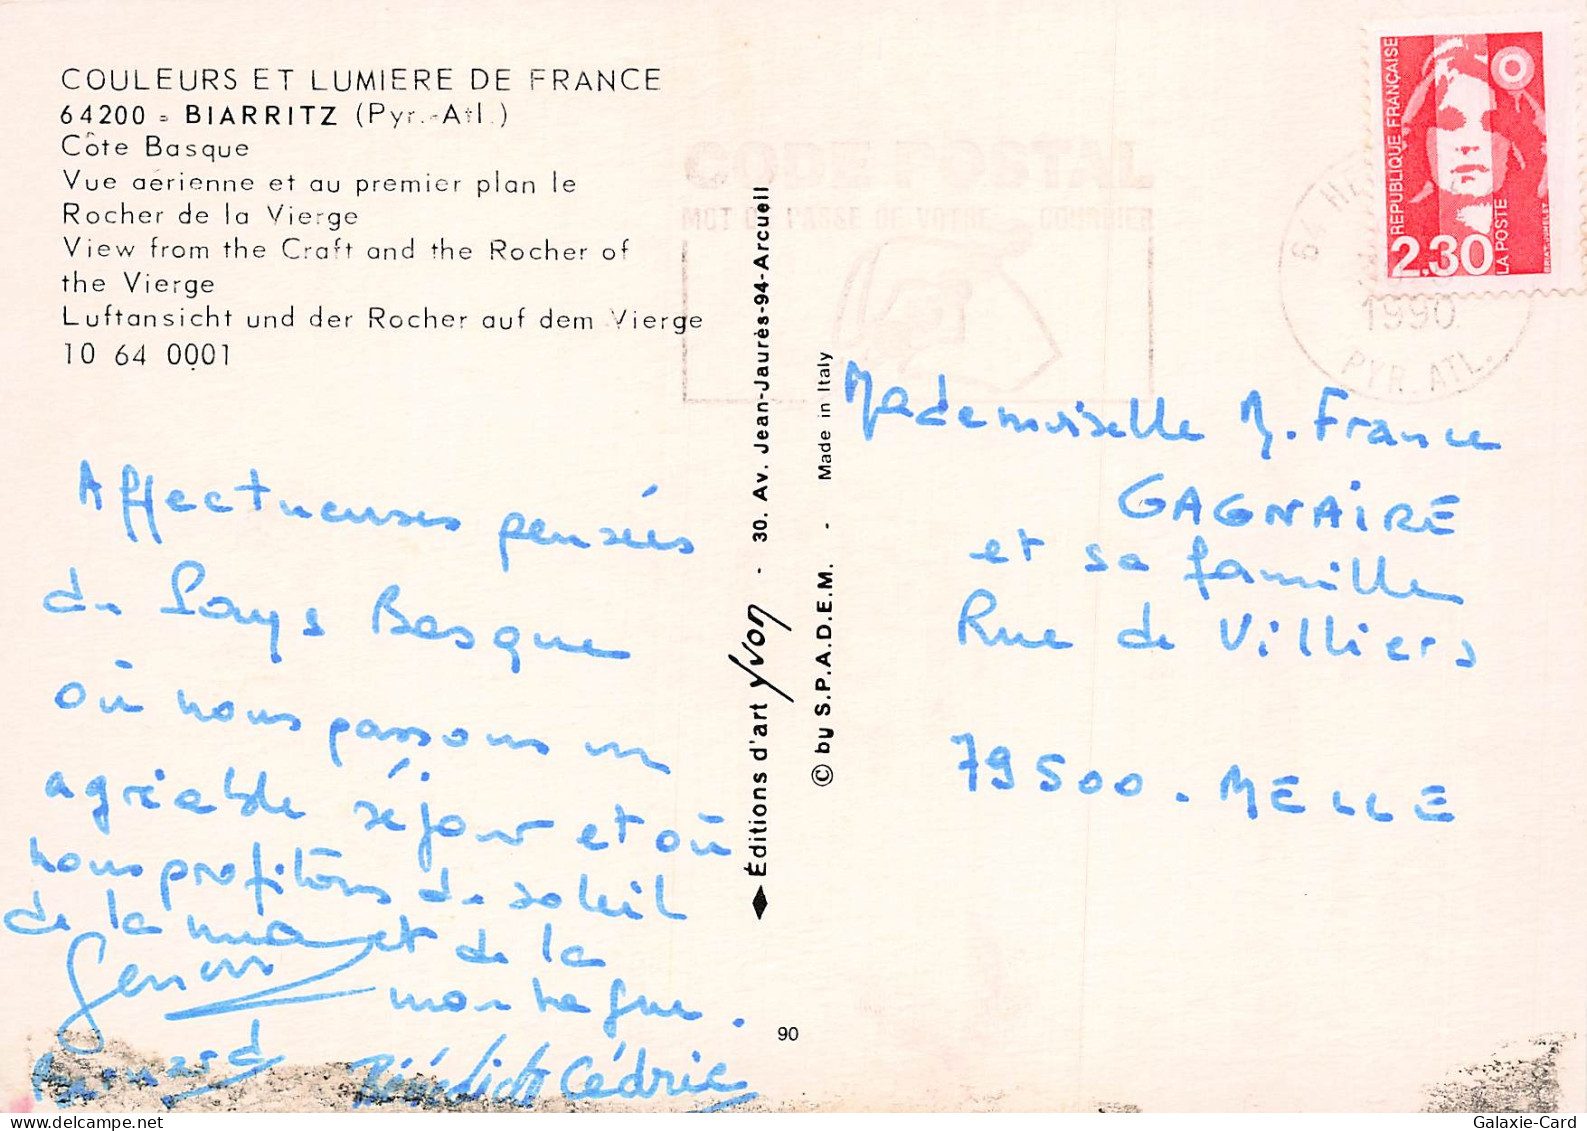 COULEURS ET LUMIERE DE FRANCE
64200 - BIARRITZ (Pyr.-Atl.)
Côte Basque
Vue aérienne et au premier plan le
Rocher de la Vierge
View from the Craft and the Rocher of
the Vierge
Luftansicht und der Rocher auf dem Vierge
10 64 0001
CODE POSTAL
MOT DE PASSE DE VOTRE COURRIER
REPUBLIQUE FRANÇAISE
2.30
LA POSTE
BRIAT-JUMELET
1990
PYR. ATL.
Affectueuses pensées
du Pays Basque
où nous passons un
agréable séjour et où
nous profitons du soleil
de la mer et de la
montagne.
Bernard Bénédicte Cédric
Éditions d'art Yvon - 30. Av. Jean-Jaurès-94-Arcueil
© by S.P.A.D.E.M. - Made in Italy
90
Mademoiselle M. France
GAGNAIRE
et sa famille
Rue de Villiers
79500. MELLE
Galaxie-Card